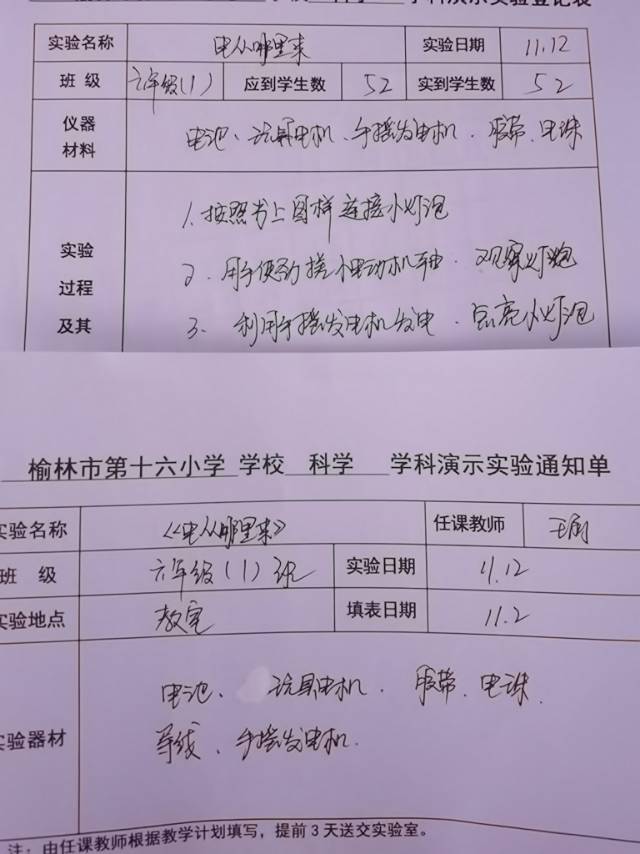 学科演示实验登记表
实验名称 电从哪里来 实验日期 11.12
班 级 六年级(1) 应到学生数 52 实到学生数 52
仪器材料 电池、玩具电机、手摇发电机、胶带、电珠
1. 按照书上图样连接小灯泡
实验 2. 用手使劲搓小电动机轴.观察灯泡
过程
及其 3. 利用手摇发电机发电.点亮小灯泡
榆林市第十六小学 学校 科学 学科演示实验通知单
实验名称 《电从哪里来》 任课教师
班 级 六年级(1)班 实验日期 11.12
实验地点 教室 填表日期 11.2
电池、玩具电机.胶带、电珠.
实验器材 导线、手摇发电机.
注：由任课教师根据教学计划填写，提前3天送交实验室。